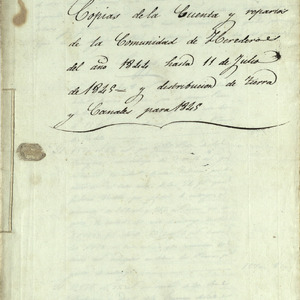 Copias de la Cuenta y reparto
de la Comunidad de Herederos
del año 1844 hasta 11 de Julio
de 1845 — y distribucion de tierra
y Canales para 1845